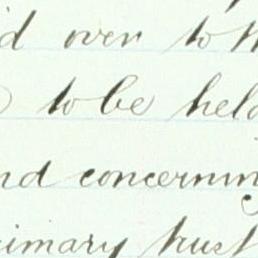 d over to th
to be held
nd concerning
rimary trust